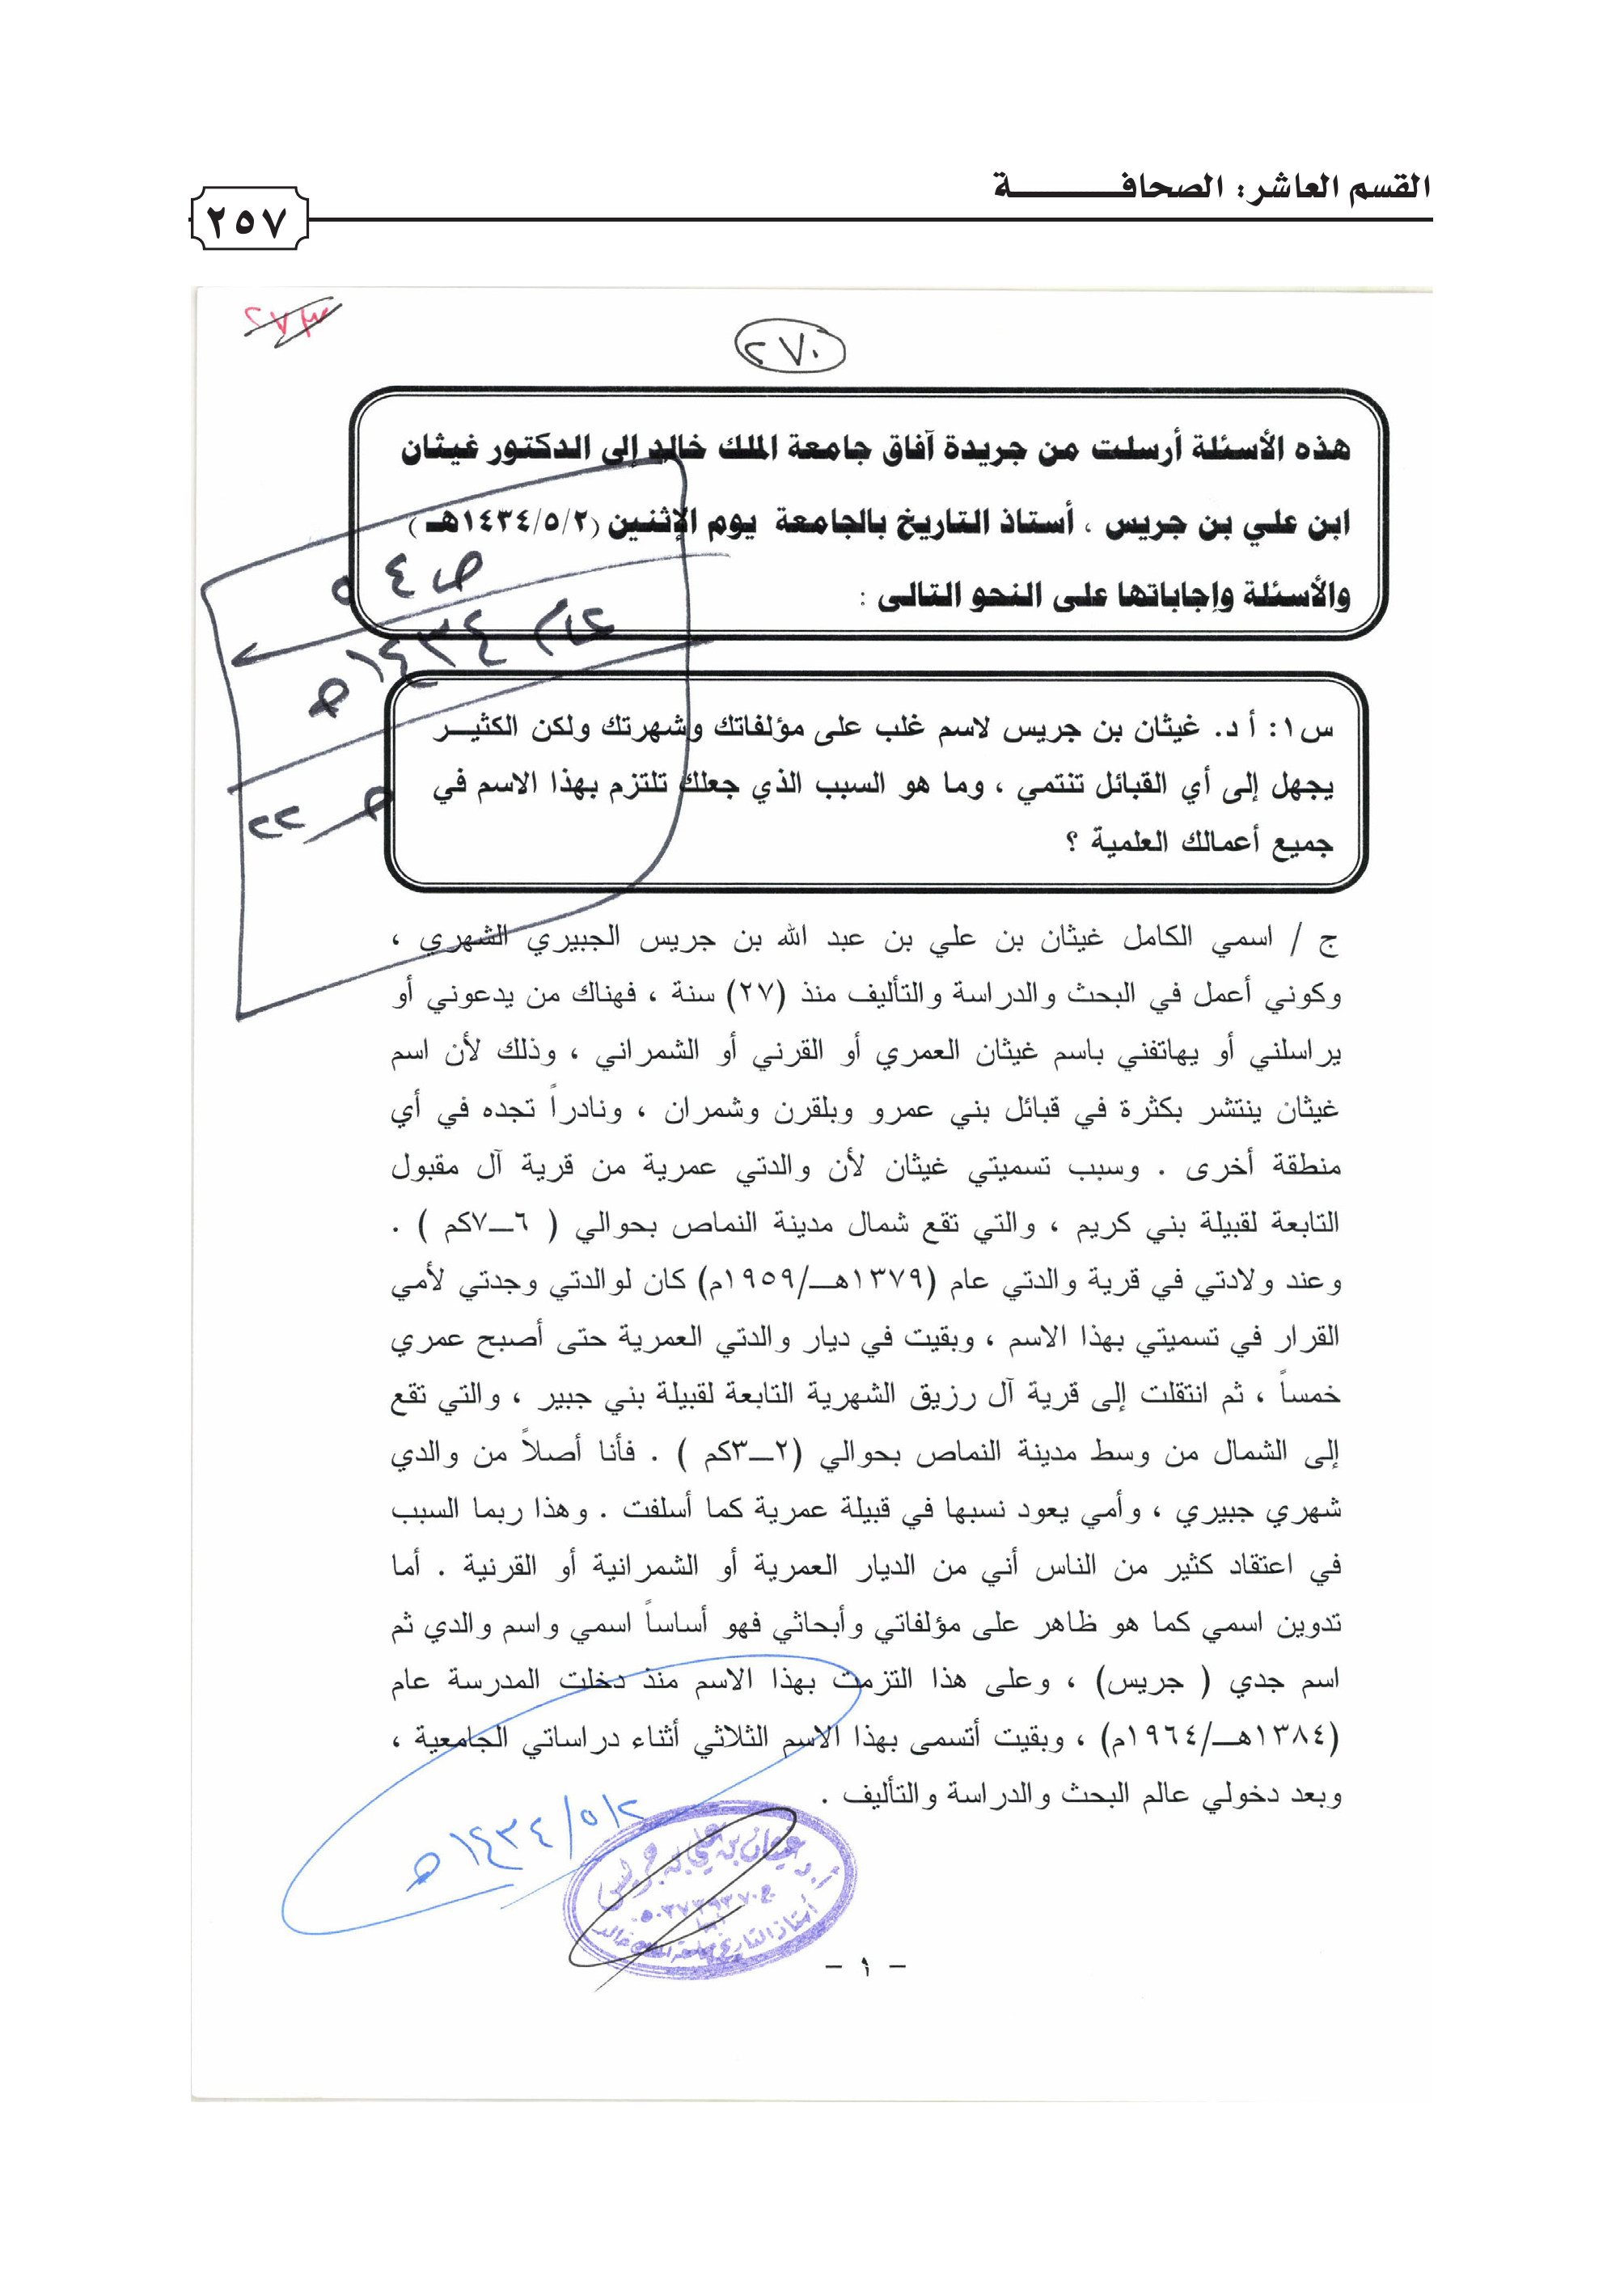 القسم العاشر: الصحافـــــــــة
٢٥٧
٢٧٣
٢٧٠
هذه الأسئلة أرسلت من جريدة آفاق جامعة الملك خالد إلى الدكتور غيثان
ابن علي بن جريس ، أستاذ التاريخ بالجامعة يوم الإثنين (١٤٣٤/٥/٢هـ )
والأسئلة وإجاباتها على النحو التالى :
عام ١٤٣٤هـ
ص ٢٢
س١: أ د. غيثان بن جريس لاسم غلب على مؤلفاتك وشهرتك ولكن الكثيـــر
يجهل إلى أي القبائل تنتمي ، وما هو السبب الذي جعلك تلتزم بهذا الاسم في
جميع أعمالك العلمية ؟
ج / اسمي الكامل غيثان بن علي بن عبد الله بن جريس الجبيري الشهري ،
وكوني أعمل في البحث والدراسة والتأليف منذ (٢٧) سنة ، فهناك من يدعوني أو
يراسلني أو يهاتفني باسم غيثان العمري أو القرني أو الشمراني ، وذلك لأن اسم
غيثان ينتشر بكثرة في قبائل بني عمرو وبلقرن وشمران ، ونادراً تجده في أي
منطقة أخرى . وسبب تسميتي غيثان لأن والدتي عمرية من قرية آل مقبول
التابعة لقبيلة بني كريم ، والتي تقع شمال مدينة النماص بحوالي ( ٦ــ٧كم ) .
وعند ولادتي في قرية والدتي عام (١٣٧٩هــ/١٩٥٩م) كان لوالدتي وجدتي لأمي
القرار في تسميتي بهذا الاسم ، وبقيت في ديار والدتي العمرية حتى أصبح عمري
خمساً ، ثم انتقلت إلى قرية آل رزيق الشهرية التابعة لقبيلة بني جبير ، والتي تقع
إلى الشمال من وسط مدينة النماص بحوالي (٢ــ٣كم ) . فأنا أصلاً من والدي
شهري جبيري ، وأمي يعود نسبها في قبيلة عمرية كما أسلفت . وهذا ربما السبب
في اعتقاد كثير من الناس أني من الديار العمرية أو الشمرانية أو القرنية . أما
تدوين اسمي كما هو ظاهر على مؤلفاتي وأبحاثي فهو أساساً اسمي واسم والدي ثم
اسم جدي ( جريس) ، وعلى هذا التزمت بهذا الاسم منذ دخلت المدرسة عام
(١٣٨٤هــ/١٩٦٤م) ، وبقيت أتسمى بهذا الاسم الثلاثي أثناء دراساتي الجامعية ،
وبعد دخولي عالم البحث والدراسة والتأليف .
١٤٣٤/٥/٢هـ
أ.د غيثان بن علي بن جريس
أستاذ التاريخ بجامعة الملك خالد
- ١ -